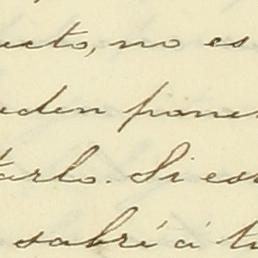 ecto, no es
eden poner
tarlo. Si es
sabré á tu